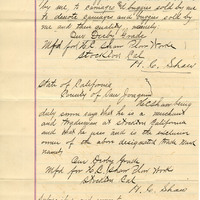 by me to carriages & buggies sold by me
to denote carriages and buggies sold by
me and their quality, namely
Our Derby Goods
Mfd for H.C. Shaw Plow Works
Stockton Cal
H. C. Shaw
State of California
County of San Joaquin
H C Shaw being
duly sworn says that he is a merchant
and at Stockton California
and that he is
owner of the above designated trade mark
name
Our Derby Goods
Mfd for H.C. Shaw Plow Works
Stockton Cal
H. C. Shaw